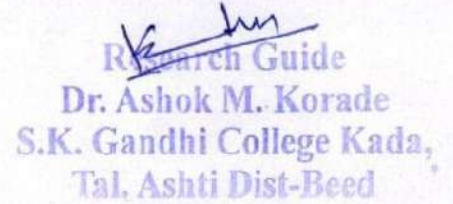 Research Guide
Dr. Ashok M. Korade
S.K. Gandhi College Kada,
Tal. Ashti Dist-Beed